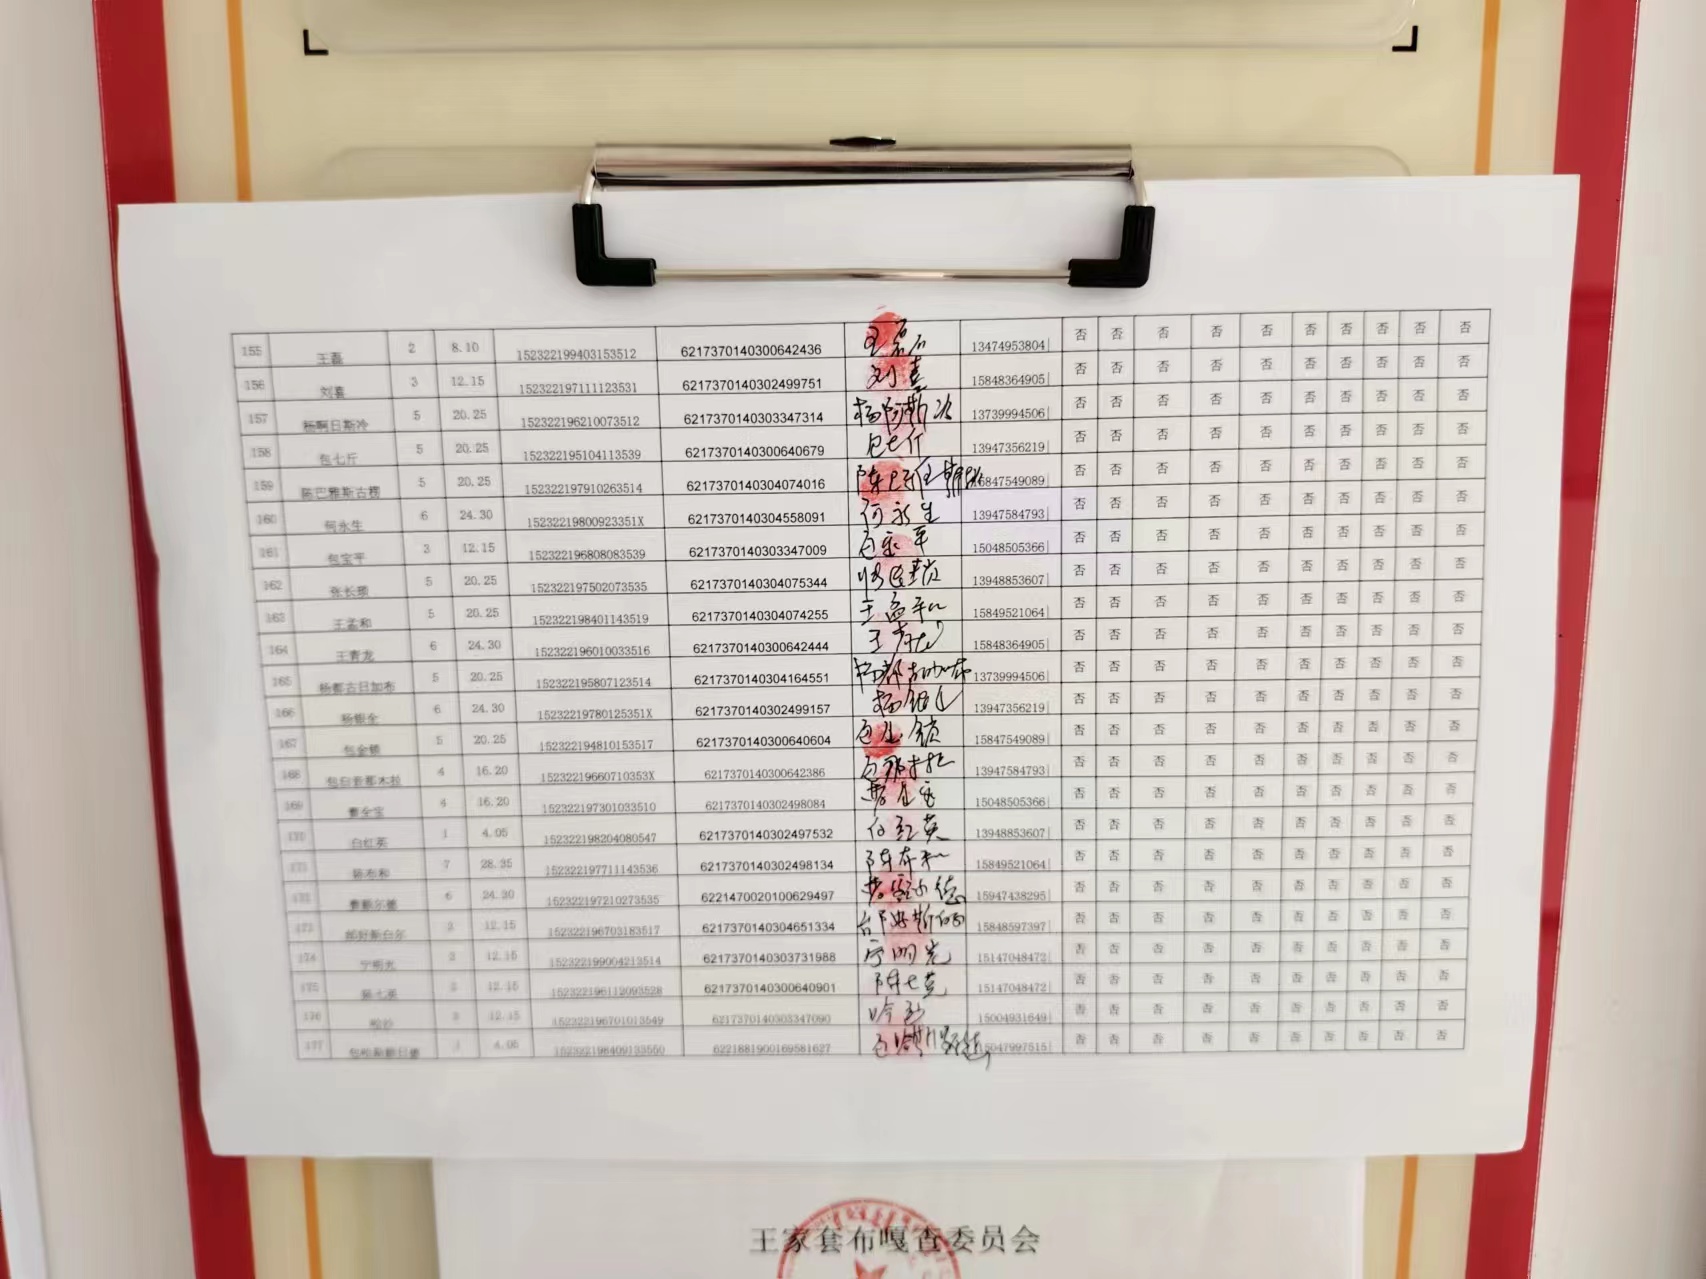 155 王磊 2 8.10 152322199403153512 6217370140300642436 王磊 13474953804 否 否 否 否 否 否 否 否 否 否
156 刘喜 3 12.15 152322197111123531 6217370140302499751 刘喜 15848364905 否 否 否 否 否 否 否 否 否 否
157 杨啊日斯冷 5 20.25 152322196210073512 6217370140303347314 13739994506 否 否 否 否 否 否 否 否 否 否
158 包七斤 5 20.25 152322195104113539 6217370140300640679 包七斤 13947356219 否 否 否 否 否 否 否 否 否 否
159 陈巴雅斯古楞 5 20.25 152322197910263514 6217370140304074016 15847549089 否 否 否 否 否 否 否 否 否 否
160 何永生 6 24.30 15232219800923351X 6217370140304558091 何永生 13947584793 否 否 否 否 否 否 否 否 否 否
161 包宝平 3 12.15 152322196808083539 6217370140303347009 15048505366 否 否 否 否 否 否 否 否 否 否
162 张长锁 5 20.25 152322197502073535 6217370140304075344 13948853607 否 否 否 否 否 否 否 否 否 否
163 王孟和 5 20.25 152322198401143519 6217370140304074255 王孟和 15849521064 否 否 否 否 否 否 否 否 否 否
164 王青龙 6 24.30 152322196010033516 6217370140300642444 王青龙 15848364905 否 否 否 否 否 否 否 否 否 否
165 杨都古日加布 5 20.25 152322195807123514 6217370140304164551 13739994506 否 否 否 否 否 否 否 否 否 否
166 杨银全 6 24.30 15232219780125351X 6217370140302499157 13947356219 否 否 否 否 否 否 否 否 否 否
167 包金锁 5 20.25 152322194810153517 6217370140300640604 包金锁 15847549089 否 否 否 否 否 否 否 否 否 否
168 4 16.20 15232219660710353X 6217370140300642386 13947584793 否 否 否 否 否 否 否 否 否 否
169 4 16.20 152322197301033510 6217370140302498084 15048505366 否 否 否 否 否 否 否 否 否 否
170 白红英 1 4.05 152322198204080547 6217370140302497532 白红英 13948853607 否 否 否 否 否 否 否 否 否 否
171 陈布和 7 28.35 152322197711143536 6217370140302498134 陈布和 15849521064 否 否 否 否 否 否 否 否 否 否
172 6 24.30 152322197210273535 6221470020100629497 15947438295 否 否 否 否 否 否 否 否 否 否
173 3 12.15 152322196703183517 6217370140304651334 15848597397 否 否 否 否 否 否 否 否 否 否
174 宁明光 3 12.15 152322199004213514 6217370140303731988 宁明光 15147048472 否 否 否 否 否 否 否 否 否 否
175 陈七英 3 12.15 152322196112093528 6217370140300640901 陈七英 15147048472 否 否 否 否 否 否 否 否 否 否
176 3 12.15 152322196701013549 6217370140303347090 15004931649 否 否 否 否 否 否 否 否 否 否
177 1 4.05 152322198409133550 6221881900169581627 15047997515 否 否 否 否 否 否 否 否 否 否
王家套布嘎查委员会